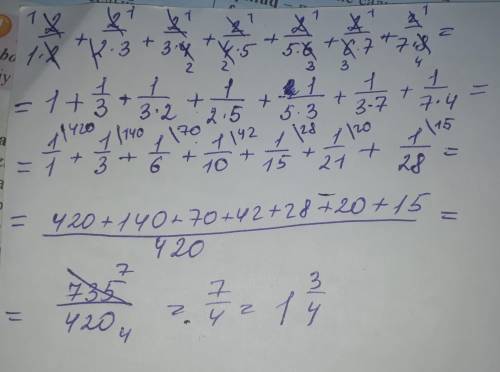 2/1·2 + 2/2·3 + 2/3·4 + 2/4·5 + 2/5·6 + 2/6·7 + 2/7·8 =
= 1 + 1/3 + 1/3·2 + 1/2·5 + 1/5·3 + 1/3·7 + 1/7·4 =
= 1/1 \420 + 1/3 \140 + 1/6 \70 + 1/10 \42 + 1/15 \28 + 1/21 \20 + 1/28 \15 =
= 420+140+70+42+28+20+15 / 420 =
= 735 7 / 420 4 = 7/4 = 1 3/4